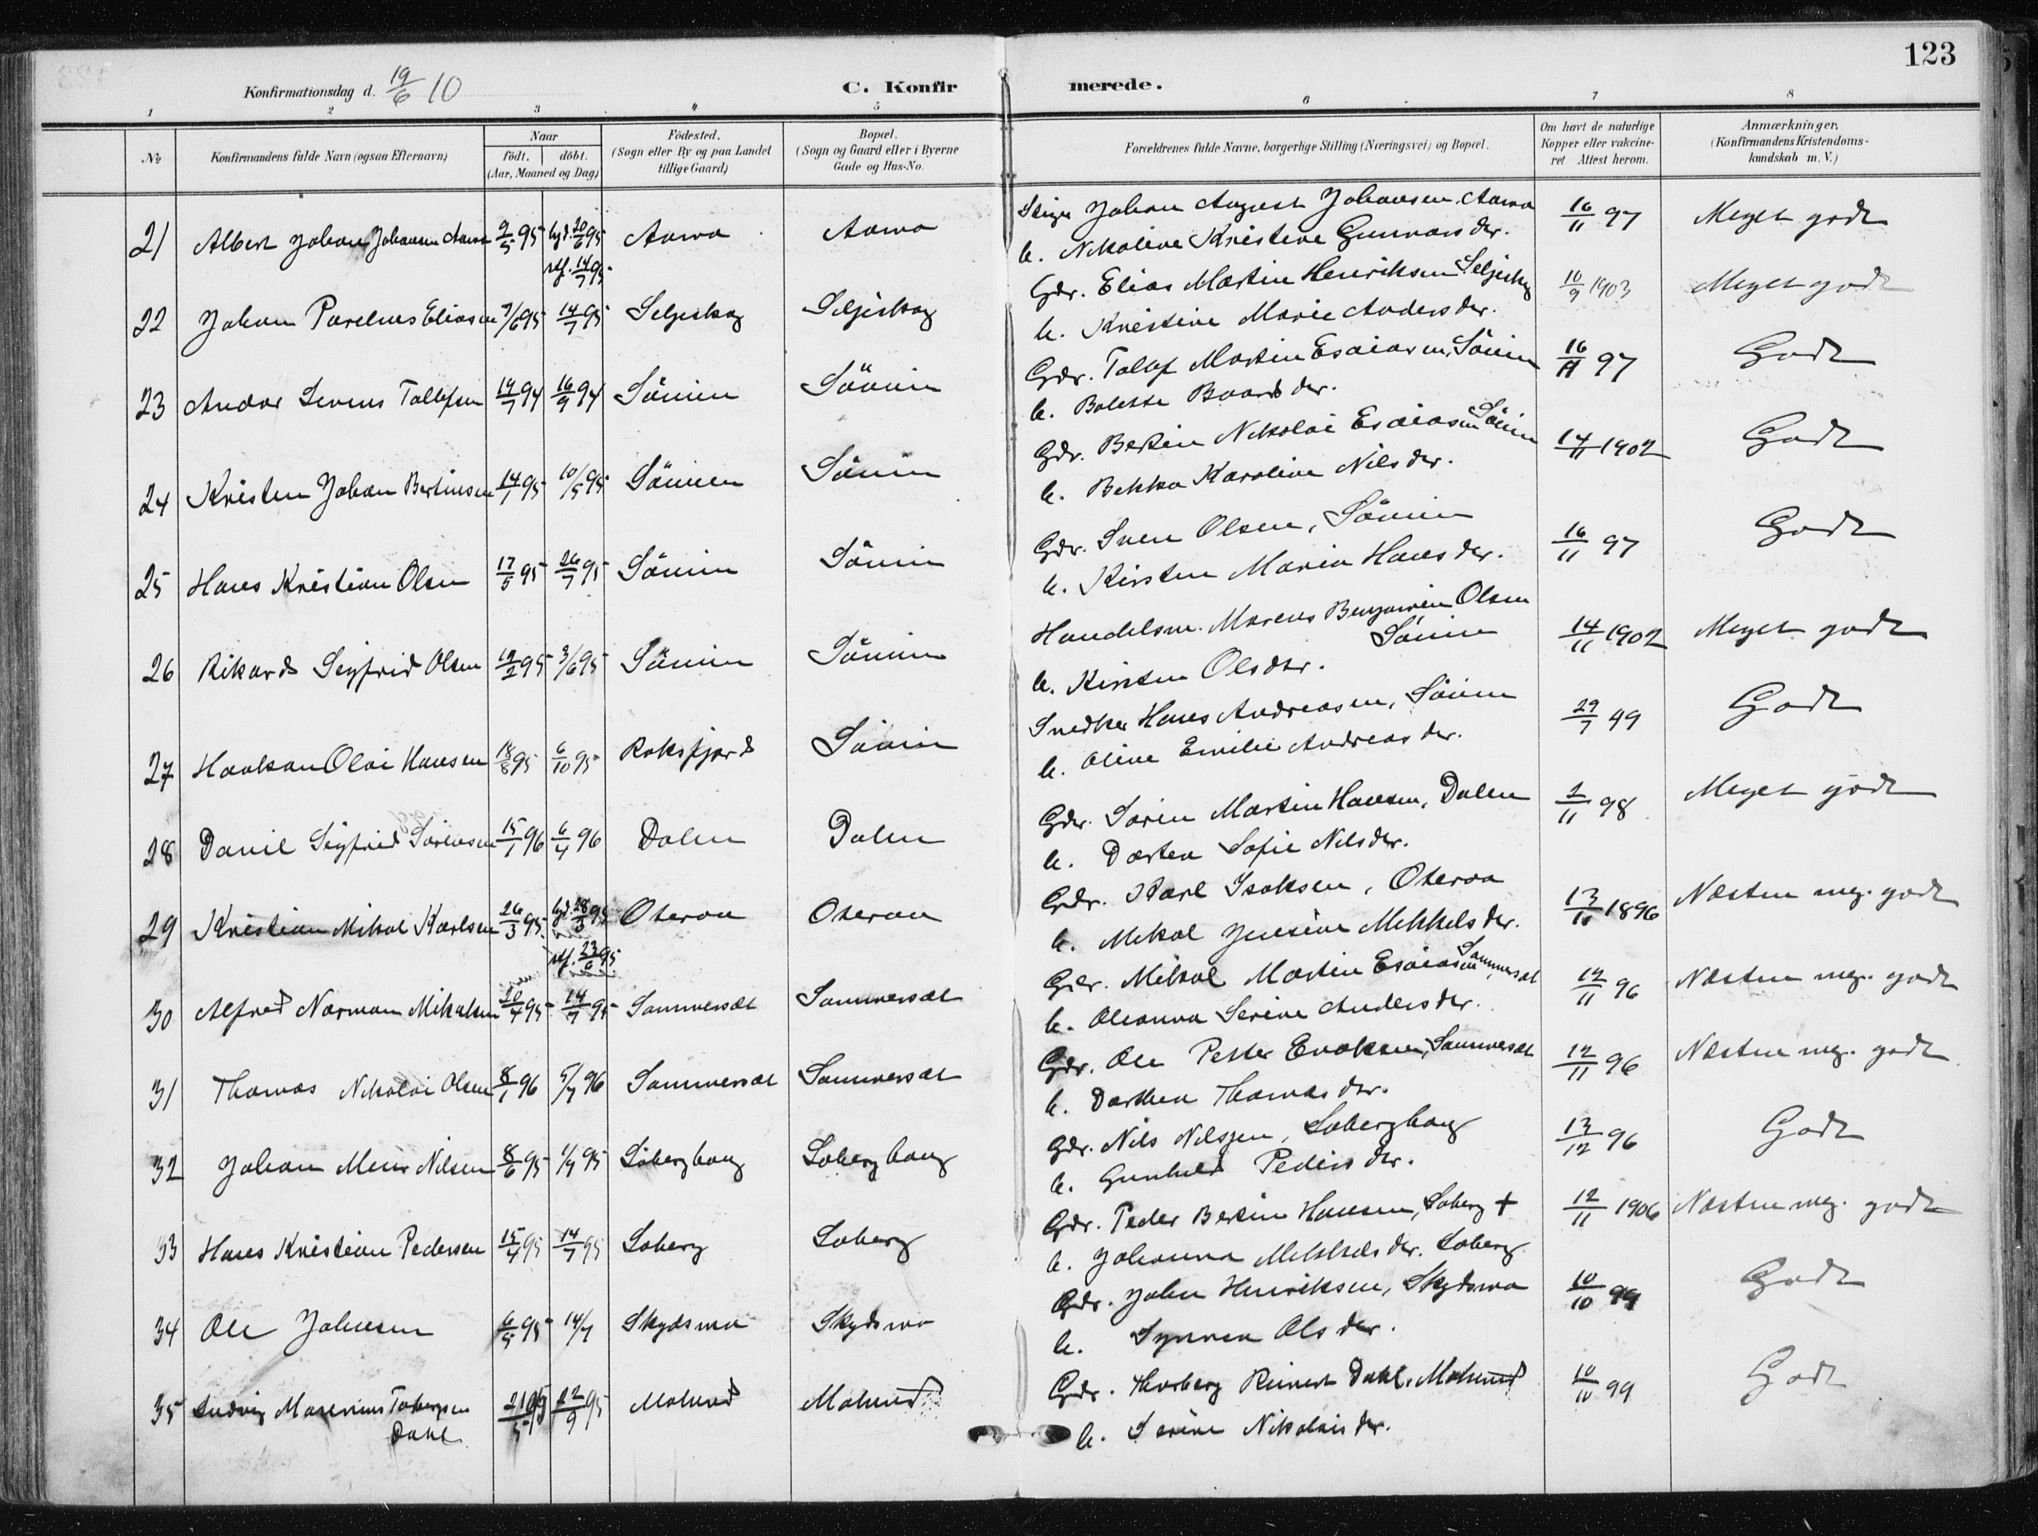 123
Konfirmationsdag d. 19/6 10
C. Konfirmerede.
1 2 3 4 5 6 7 8
No
Konfirmandens fulde Navn (ogsaa Efternavn)
Naar
født. døbt.
(Aar, Maaned og Dag)
Fødested.
(Sogn eller By og paa Landet
tillige Gaard)
Bopæl.
(Sogn og Gaard eller i Byerne
Gade og Hus-No.
Forældrenes fulde Navne, borgerlige Stilling (Næringsvei) og Bopæl.
Om havt de naturlige
Kopper eller vakcine-
ret Attest herom.
Anmærkninger.
(Konfirmandens Kristendoms-
kundskab m. V.)
21 Albert Johan Johansen Aarva 9/5 95 20/6 95 Aarva Aarva Johan August Johansen, Aarva 16/11 97 Meget godt
14/7 95 h. Nikoline Kristine Gunnarsdtr.
22 Johan Parelius Eliasen 7/6 95 14/7 95 Seljeskog Seljeskog Gdr. Elias Martin Henriksen Seljeskog 10/9 1903 Meget godt
h. Kristine Marie Andersdtr.
23 Andor Tollefsen 14/7 94 16/9 94 Sönien Sönien Gdr. Tollef Martin Esaiasen, Sönien 16/11 97 Godt
h. Bolette Baardsdtr.
24 Kristen Johan Bertinsen 14/1 95 10/5 95 Sönien Sönien Gdr. Bertin Nikolai Esaiasen Sönien 14/11 1902 Godt
h. Bekka Karoline Nilsdtr.
25 Hans Kristian Olsen 17/5 95 26/7 95 Sönien Sönien Gdr. Sven Olsen, Sönien 16/11 97 Godt
h. Kirsten Maria Hansdtr.
26 Rikard Sigfrid Olsen 12/2 95 3/6 95 Sönien Sönien Handelsm. Marcus Benjamin Olsen 14/11 1902 Meget godt
Sönien
h. Kirsten Olsdtr.
27 Haakon Olai Hansen 18/8 95 6/10 95 Roksfjord Sönien Snedker Hans Andreasen, Sönien 29/7 99 Godt
h. Oline Emilie Andreasdtr.
28 Daniel Sigfrid Sörensen 15/1 96 6/4 96 Dalen Dalen Gdr. Sören Martin Hansen, Dalen 1/11 98 Meget godt
h. Dorten Sofie Nilsdtr.
29 Kristian Mikal Karlsen 26/3 95 28/3 95 Oteraa Oteraa Gdr. Karl Isaksen, Oteraa 13/11 1896 Næsten meg. godt
23/6 95 h. Mikal Jensine Mikkelsdtr.
30 Alfred Norman Mikalsen 20/4 95 14/7 95 Sommersæt Sommersæt Gdr. Mikal Martin Esaiasen Sommersæt 12/11 96 Næsten meg. godt
h. Oleanna Serine Andersdtr.
31 Thomas Nikolai Olsen 8/1 96 5/7 96 Sommersæt Sommersæt Gdr. Ole Petter Enoksen, Sommersæt 12/11 96 Næsten meg. godt
h. Dorthea Thomasdtr.
32 Johan Meier Nilsen 8/6 95 1/9 95 Soberghaug Soberghaug Gdr. Nils Nilssen, Soberghaug 13/12 96 Godt
h. Gunhild Pedersdtr.
33 Hans Kristian Pedersen 15/4 95 14/7 95 Soberg Soberg Gdr. Peder Bertin Hansen, Soberg + 12/11 1906 Næsten meg. godt
h. Johanna Mikkelsdtr. Soberg
34 Ole Johnsen 6/5 95 14/7 Skydsmo Skydsmo Gdr. John Henriksen, Skydsmo 10/10 99 Godt
h. Synnva Olsdtr.
35 Ludvig Marenius Torbergsen 21/5 95 22/9 95 Molund Molund Gdr. Torberg Reinert Dahl, Molund 10/10 99 Godt
Dahl h. Serine Nikolaisdtr.